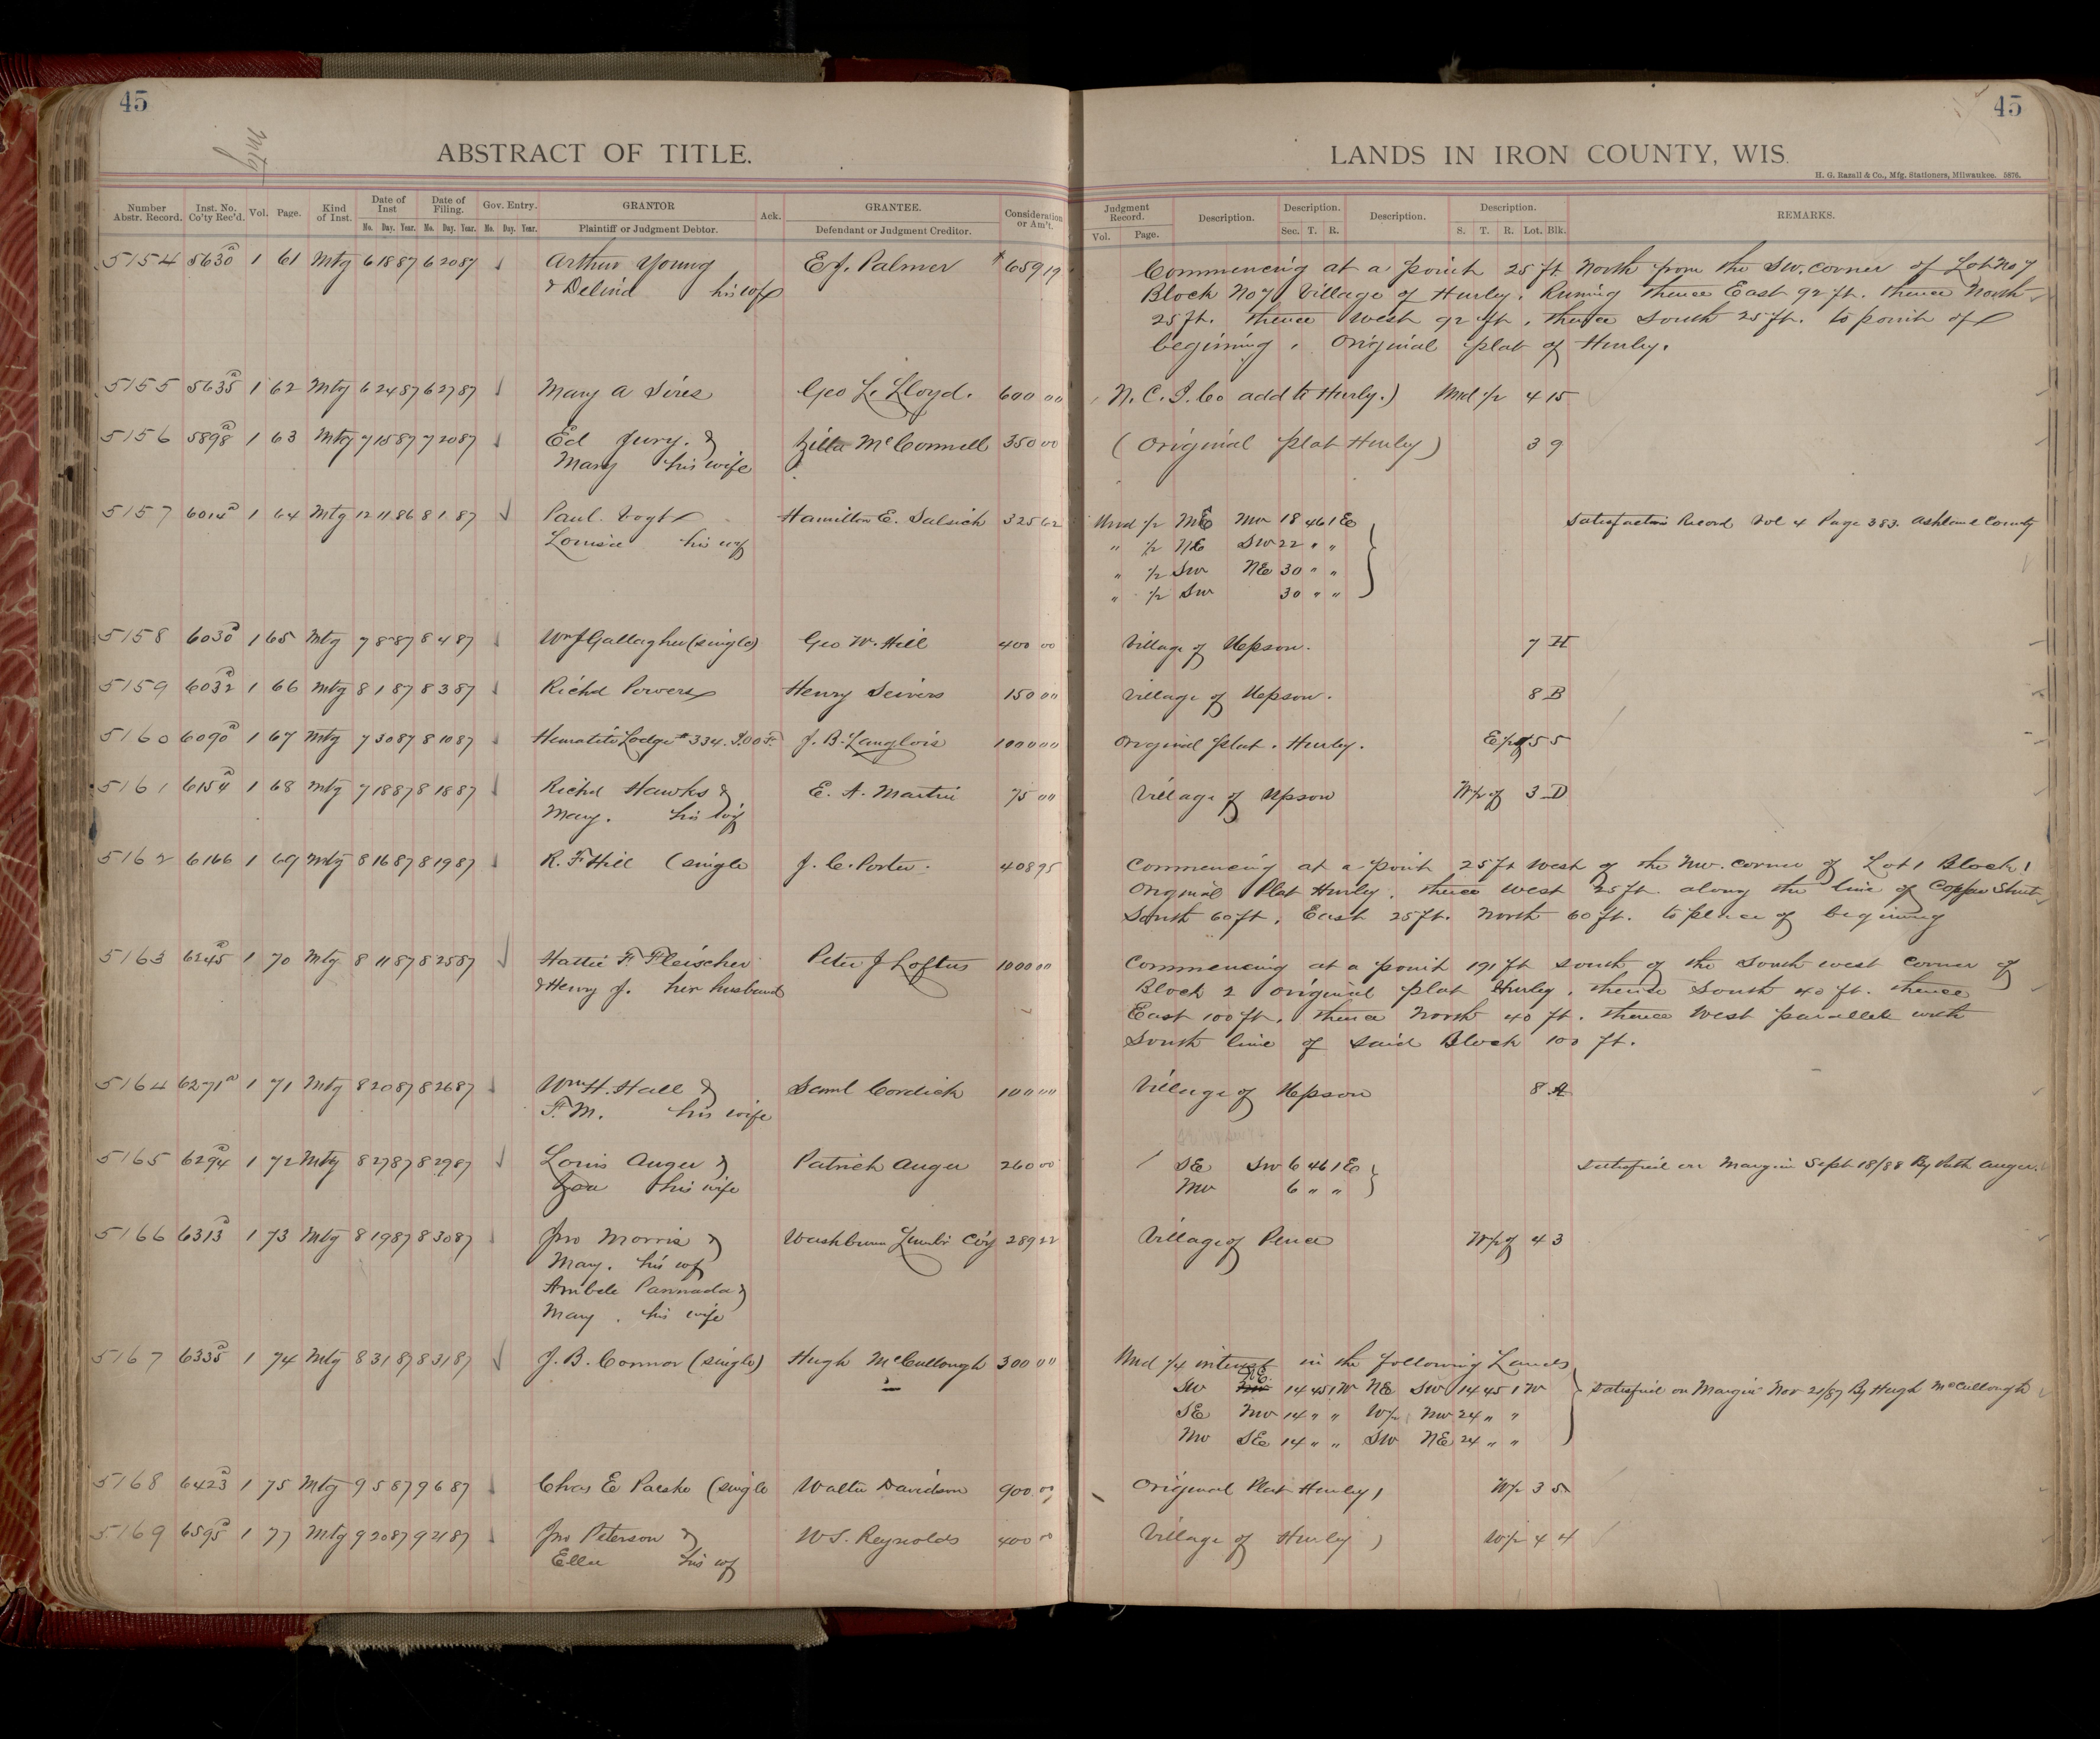 45
Mtg
ABSTRACT OF TITLE.
Number Abstr. Record. Inst. No. Co'ty Rec'd. Vol. Page. Kind of Inst. Date of Inst No. Day. Year. Date of Filing. No. Day. Year. Gov. Entry. No. Day. Year. GRANTOR Plaintiff or Judgment Debtor. Ack. GRANTEE. Defendant or Judgment Creditor. Consideration or Am't.
5154 5630 a 1 61 Mtg 6 18 87 6 20 87 Arthur Young E J. Palmer $659 19
& Delind his wf
5155 5635 a 1 62 Mtg 6 24 87 6 27 87 Mary A Sires Geo L. Lloyd. 600 00
5156 5898 a 1 63 Mtg 7 15 87 7 20 87 Ed Jury. & Zilla McConnell 350 00
Mary his wife
5157 6014 a 1 64 Mtg 12 11 86 8 1 87 Paul Vogt Hamilton E. Salsich 325 62
Louisa his wf
5158 6030 a 1 65 Mtg 7 8 87 8 4 87 Wm J Gallagher (single) Geo W. Hill 400 00
5159 6032 a 1 66 Mtg 8 1 87 8 3 87 Richd Powers Henry Seivers 150 00
5160 6090 a 1 67 Mtg 7 30 87 8 10 87 Hematite Lodge # 334. I.O.O.F. J. B. Langlois 1000 00
5161 6154 a 1 68 Mtg 7 18 87 8 18 87 Richd Hawks & E. A. Martin 75 00
Mary. his wf
5162 6166 1 69 Mtg 8 16 87 8 19 87 R. F. Hill (single J. C. Porter. 408 95
5163 6245 a 1 70 Mtg 8 11 87 8 25 87 Hattie F. Fleischer Peter J Loftus 1000 00
& Henry J. her husband
5164 6271 a 1 71 Mtg 8 20 87 8 26 87 Wm H. Hall & Saml Cordick 100 00
F. M. his wife
5165 6294 a 1 72 Mtg 8 27 87 8 29 87 Louis Auger & Patrick Auger 260 00
his wife
5166 6313 a 1 73 Mtg 8 19 87 8 30 87 Jno Morris & Washburn Lumbr Co'y 289 22
Mary. his wf
Pannada &
Mary. his wife
5167 6335 a 1 74 Mtg 8 31 87 8 31 87 J. B. Connor (single) Hugh McCullough 300 00
5168 6423 a 1 75 Mtg 9 5 87 9 6 87 Chas E Paeske (single Walter Davidson 900 00
5169 6595 a 1 77 Mtg 9 20 87 9 21 87 Jno Peterson & W S. Reynolds 400 00
Ella his wf
45
LANDS IN IRON COUNTY, WIS.
H. G. Razall & Co., Mfg. Stationers, Milwaukee. 5876.
Judgment Record. Vol. Page. Description. Description. Sec. T. R. Description. Description. S. T. R. Lot. Blk. REMARKS.
Commencing at a point 25 ft North from the SW. corner of Lot No 7
Block No 7 Village of Hurley. Runing thence East 92 ft. thence North
25 ft. thence West 92 ft, thence South 25 ft. to point of
begining, Original plat of Hurley.
N. C. I. Co add to Hurley.) Und 1/2 4 15
(Original plat Hurley) 3 9
Und 1/2 NE NW 18 46 1 E Satisfaction Record Vol 4 Page 383. Ashland County
" 1/2 NE SW 22 " "
" 1/2 SW NE 30 " "
" 1/2 SW 30 " "
Village of Upson. 7 H
Village of Upson. 8 B
Original Plat. Hurley. E 1/2 of 5 5
Village of Upson W 1/2 of 3 D
Commencing at a point 25 ft West of the NW. corner of Lot 1 Block 1
Original Plat Hurley. thence West 25 ft. along the line of Copper Street
South 60 ft, East 25 ft. North 60 ft. to place of begining
Commencing at a point 191 ft South of the South west corner of
Block 2 original plat Hurley, thence South 40 ft. thence
East 100 ft. thence North 40 ft. thence West parallel with
South line of said Block 100 ft.
Village of Upson 8 A
SE SW 6 46 1 E Satisfied on Margin Sept 18/88 By Path Auger.
NW 6 " "
Village of Pence W 1/2 of 4 3
Und 1/4 interest in the following Lands
SW NE 14 45 1 W NE SW 14 45 1 W Satisfied on Margin Nov 21/87 By Hugh McCullough
SE NW 14 " " W 1/2 NW 24 " "
NW SE 14 " " SW NE 24 " "
Original Plat Hurley) W 1/2 3 5
Village of Hurley) W 1/2 4 4